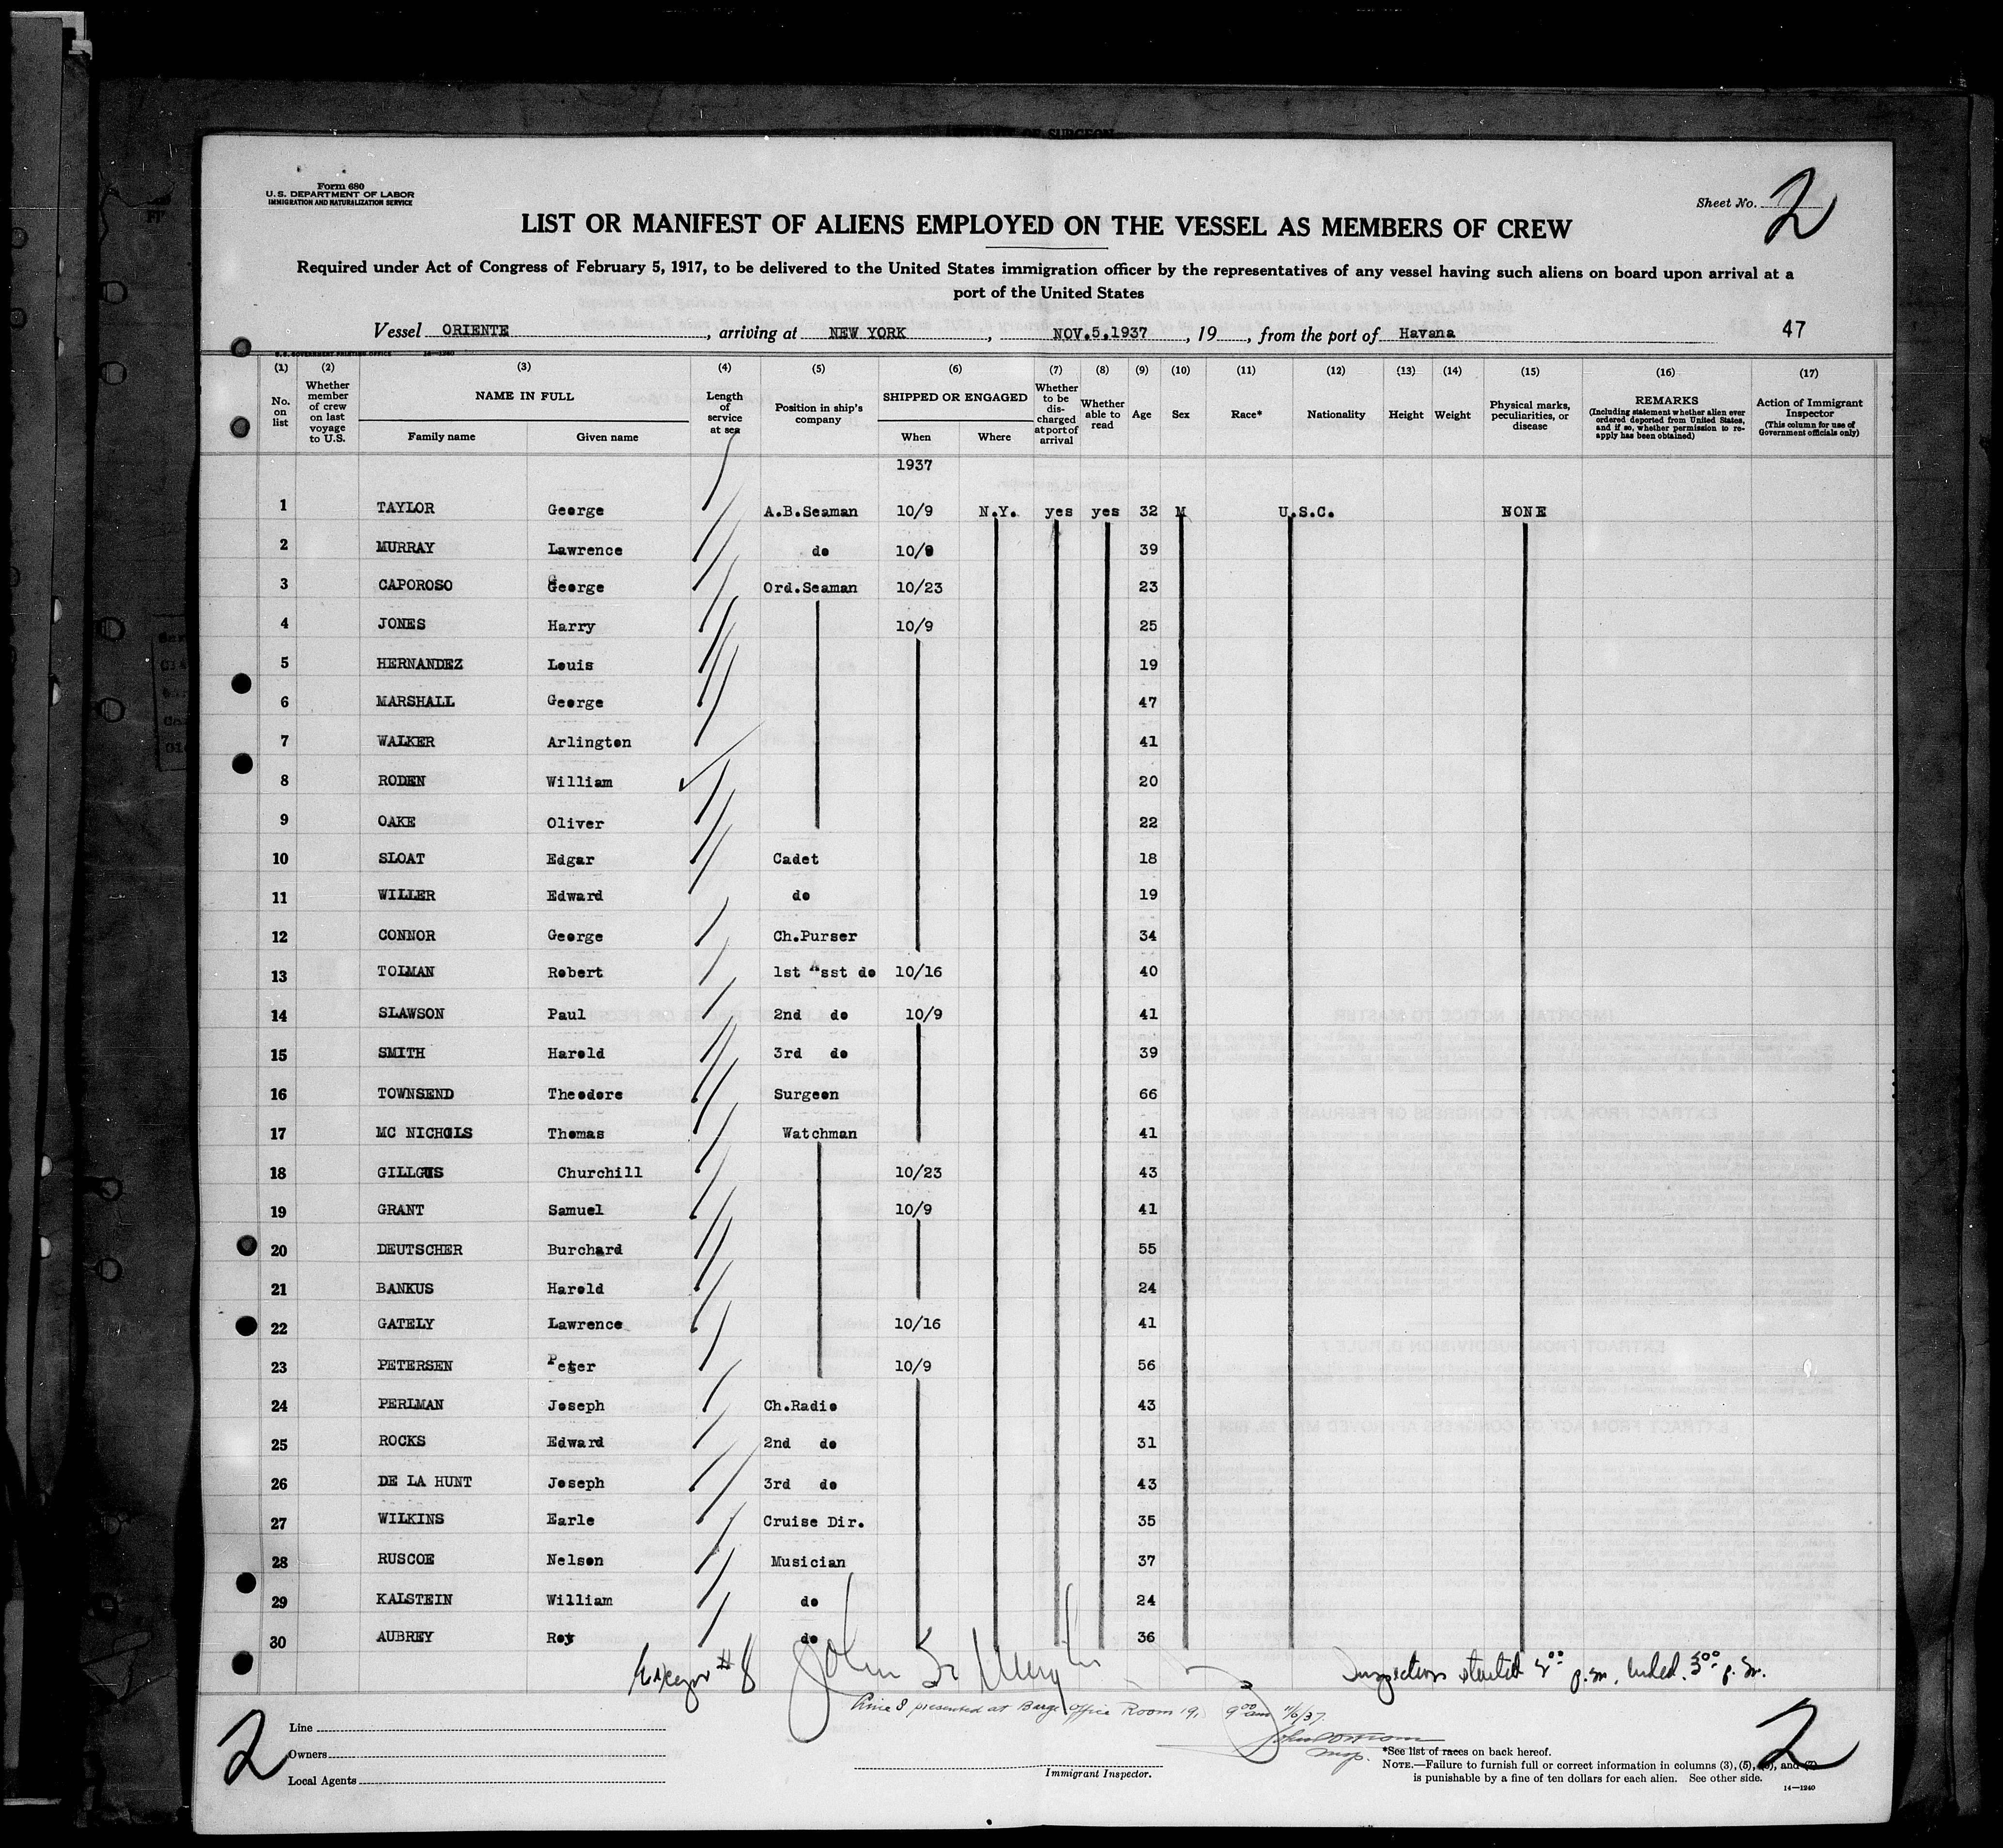 Form 680
U. S. DEPARTMENT OF LABOR
IMMIGRATION AND NATURALIZATION SERVICE
Sheet No. 2
LIST OR MANIFEST OF ALIENS EMPLOYED ON THE VESSEL AS MEMBERS OF CREW
Required under Act of Congress of February 5, 1917, to be delivered to the United States immigration officer by the representatives of any vessel having such aliens on board upon arrival at a
port of the United States
Vessel ORIENTE, arriving at NEW YORK, NOV.5.1937, 19, from the port of Havana 47
U.S. GOVERNMENT PRINTING OFFICE 14—1240
(1) No. on list
(2) Whether member of crew on last voyage to U.S.
(3) NAME IN FULL Family name Given name
(4) Length of service at sea
(5) Position in ship's company
(6) SHIPPED OR ENGAGED When Where
(7) Whether to be discharged at port of arrival
(8) Whether able to read
(9) Age
(10) Sex
(11) Race*
(12) Nationality
(13) Height
(14) Weight
(15) Physical marks, peculiarities, or disease
(16) REMARKS (Including statement whether alien ever ordered deported from United States, and if so, whether permission to re-apply has been obtained)
(17) Action of Immigrant Inspector (This column for use of Government officials only)
1937
1 TAYLOR George A.B.Seaman 10/9 N.Y. yes yes 32 M U.S.C. NONE
2 MURRAY Lawrence do 10/9 39
3 CAPOROSO George Ord.Seaman 10/23 23
4 JONES Harry 10/9 25
5 HERNANDEZ Louis 19
6 MARSHALL George 47
7 WALKER Arlington 41
8 RODEN William 20
9 OAKE Oliver 22
10 SLOAT Edgar Cadet 18
11 WILLER Edward do 19
12 CONNOR George Ch.Purser 34
13 TOLMAN Robert 1st Asst do 10/16 40
14 SLAWSON Paul 2nd do 10/9 41
15 SMITH Harold 3rd do 39
16 TOWNSEND Theodore Surgeon 66
17 MC NICHOLS Thomas Watchman 41
18 Churchill 10/23 43
19 GRANT Samuel 10/9 41
20 DEUTSCHER Burchard 55
21 BANKUS Harold 24
22 GATELY Lawrence 10/16 41
23 PETERSEN Peter 10/9 56
24 PERLMAN Joseph Ch.Radio 43
25 ROCKS Edward 2nd do 31
26 DE LA HUNT Joseph 3rd do 43
27 WILKINS Earle Cruise Dir. 35
28 RUSCOE Nelson Musician 37
29 KALSTEIN William do 24
30 AUBREY Roy do 36
Except # 8 John Inspection started p.m. ended 5:00 p.m.
Line 8 presented at Barge Office Room 19, 9:00 am 11/6/37
Insp.
2 2
Line
Owners
Local Agents
Immigrant Inspector.
*See list of races on back hereof.
NOTE.—Failure to furnish full or correct information in columns (3), (5), (6), and (7)
is punishable by a fine of ten dollars for each alien. See other side.
14—1240